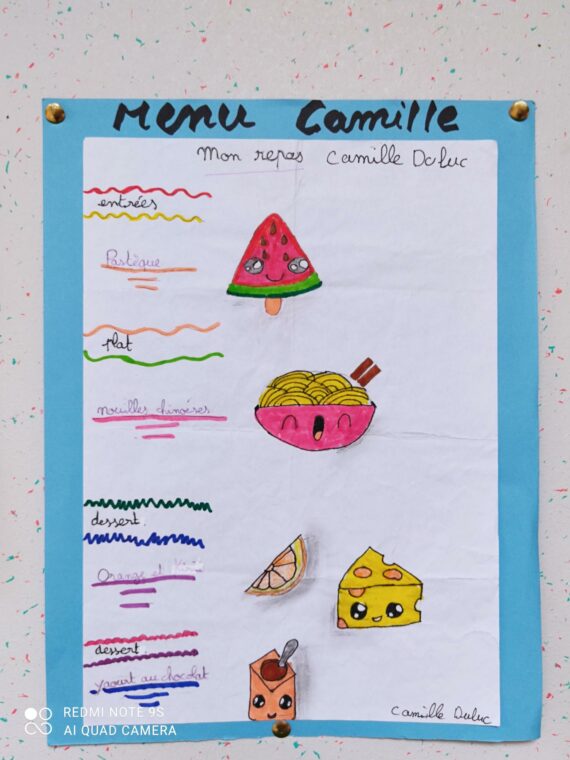 Menu Camille
Mon repas Camille Duluc
entrées
Pastèque
plat
nouilles chinoises
dessert.
Orange et
dessert.
yaourt au chocolat
Camille Duluc
REDMI NOTE 9S
AI QUAD CAMERA